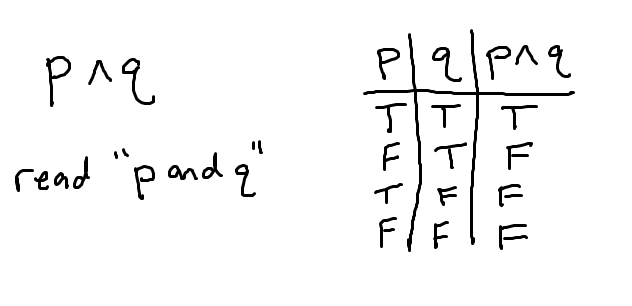 p ∧ q
read "p and q"
p | q | p ∧ q
T | T | T
F | T | F
T | F | F
F | F | F